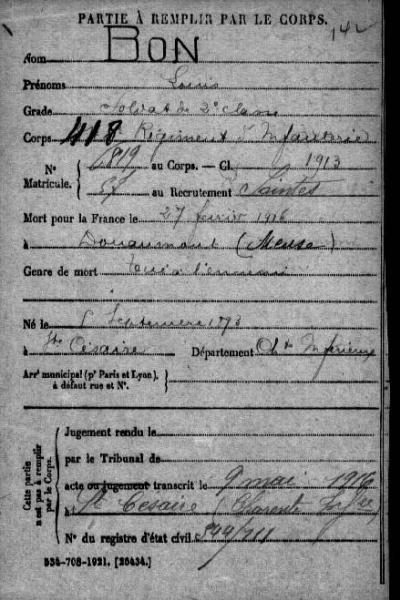 PARTIE À REMPLIR PAR LE CORPS.
142
Nom BON
Prénoms Louis
Grade Soldat de 2e classe
Corps 418 Régiment d'Infanterie
N° Matricule. { 6819 au Corps. — Cl. 1913
au Recrutement Saintes
Mort pour la France le 27 février 1916
à Douaumont (Meuse)
Genre de mort Tué à l'ennemi
Né le Septembre 1893
à Ste Césaire Département Chte Inférieure
Arrt municipal (pr Paris et Lyon), à défaut rue et N°.
Cette partie n'est pas à remplir par le Corps.
Jugement rendu le
par le Tribunal de
acte ou jugement transcrit le 9 mai 1916
à St Cesaire (Charente Infre)
N° du registre d'état civil 544/711
534-708-1921. [26434.]